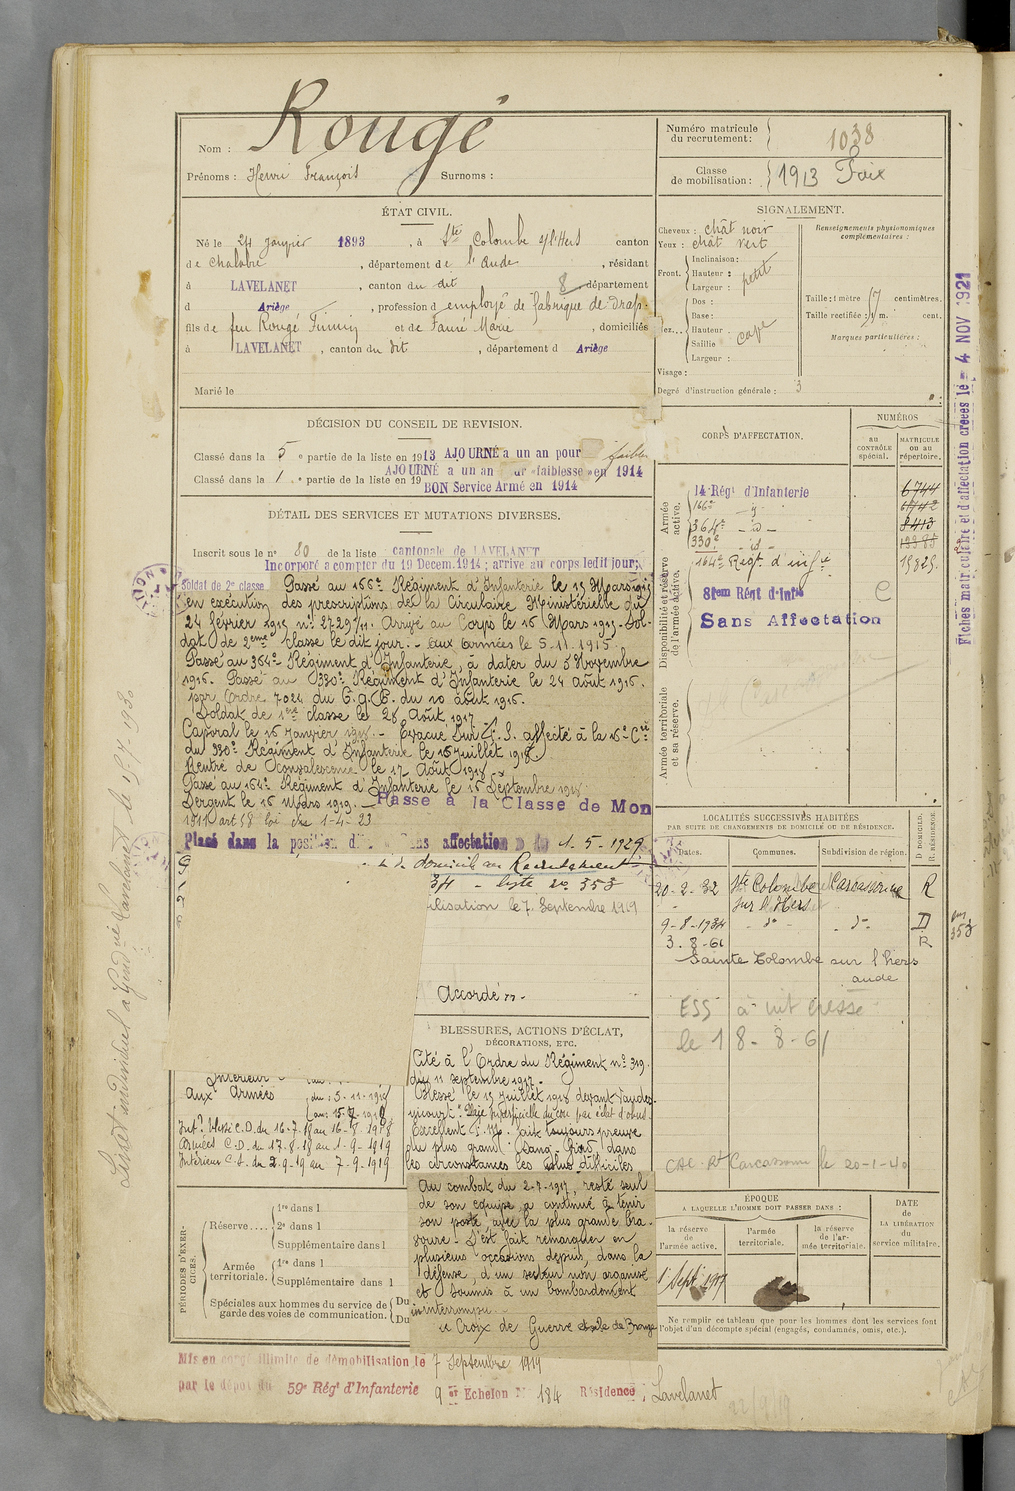 Nom : Rougé
Prénoms : Henri François Surnoms :
Numéro matricule du recrutement : 1038
Classe de mobilisation : 1913 Foix
ÉTAT CIVIL.
Né le 24 Janvier 1893, à Ste Colombe s/l'Hers canton
de Chalabre, département de l'Aude, résidant
à LAVELANET, canton du dit 8 département
d Ariège, profession d employé de fabrique de drap.
fils de feu Rougé Firmin et de Fauré Marie, domiciliés
à LAVELANET, canton du dit, département d Ariège
Marié le
SIGNALEMENT.
Cheveux : chât noir
Yeux : chât vert
Front. Inclinaison :
Hauteur : petit
Largeur :
Dos :
Base :
Nez... Hauteur :
Saillie
Largeur :
Visage :
Degré d'instruction générale : 3
Renseignements physionomiques complémentaires :
Taille : 1 mètre 57 centimètres.
Taille rectifiée : 1 m. cent.
Marques particulières :
Fiches matriculaire et d'affectation creées le - 4 NOV 1921
DÉCISION DU CONSEIL DE REVISION.
Classé dans la 5 e partie de la liste en 1913 AJOURNÉ a un an pour faibles
Classé dans la 1 e partie de la liste en 19 AJOURNÉ a un an pour «faiblesse» en 1914
BON Service Armé en 1914
DÉTAIL DES SERVICES ET MUTATIONS DIVERSES.
Inscrit sous le n° 80 de la liste cantonale de LAVELANET
Incorporé a compter du 19 Decem. 1914 ; arrive au corps ledit jour,
Soldat de 2e classe Passé au 166e Régiment d'Infanterie le 15 Mars 1915
en exécution des prescriptions de la Circulaire Ministérielle du
24 février 1915 n° 2729/11. Arrivé au Corps le 16 Mars 1915 - Sol-
dat de 2ème Classe le dit jour. - Aux armées le 5-11-1915.
Passé au 364e Régiment d'Infanterie, à dater du 5 Novembre
1915. Passé au 330e Régiment d'Infanterie le 24 Août 1916.
par Ordre 7024 du G.Q.G. du 10 août 1916.
Soldat de 1ère classe le 28 Août 1917
Caporal le 16 Janvier 1918. - Evacué affecté à la 16e Cie
du 330e Régiment d'Infanterie le 16 Juillet 1918.
Rentré de Convalescence le 17 Août 1918.
Passé au 164e Régiment d'Infanterie le 15 Septembre 1918
Sergent le 16 Mars 1919. - Passé à la Classe de Mon
1911 art 58 loi du 1-4-23
Placé dans la position d sans affectation 1-5-1929
domicil au Recrutement
34 - liste no 353
ilisation le 7 Septembre 1919
Accordé
CORPS D'AFFECTATION.
NUMÉROS
au CONTRÔLE spécial.
MATRICULE ou au répertoire.
Armée active.
14e Régt d'Infanterie 6744
166e - d° - 6742
364e - d° - 8413
330e - id - 13385
164e Régt d'infie 15829
Disponibilité et réserve de l'armée active.
81em Régt d'Infie C
Sans Affectation
Armée territoriale et sa réserve.
LOCALITÉS SUCCESSIVES HABITÉES
PAR SUITE DE CHANGEMENTS DE DOMICILE OU DE RÉSIDENCE.
Dates. Communes. Subdivision de région. D DOMICILE. R. RÉSIDENCE.
20-2-32 Ste Colombe sur l'Hers Carcassonne R
9-8-1934 - d° - - d° - D
3-8-61 R
Sainte Colombe sur l'hers
aude
353
ESS
le 18-8-61
CAC. Rt Carcassonne le 20-1-40
Livret individuel à Gend.ie Lavelanet le 15-7-1930
BLESSURES, ACTIONS D'ÉCLAT,
DÉCORATIONS, ETC.
Cité à l'Ordre du Régiment n° 319
du 11 septembre 1917. -
Blessé le 15 Juillet 1918 devant Vaude-
nicourt "Plaie superficielle du cou par éclat d'obus.
Excellent F.M. fait toujours preuve
du plus grand Sang-froid dans
les circonstances les plus difficiles
Au combat du 2-7-1917, resté seul
de son équipe, a continué à tenir
son poste avec la plus grande bra-
voure. S'est fait remarquer en
plusieurs occasions depuis, dans la
défense, d'un secteur non organisé
et soumis à un bombardement
ininterrompu. -
Croix de Guerre étoile de Bronze
Intérieur
aux Armées du : 5-11-1915
au 15-7-1918
Intr Blessé C.D. du 16-7-18 au 16-8-1918
Armées C.D. du 17-8-18 au 1-9-1919
Intérieur C.S. du 2-9-19 au 7-9-1919
PÉRIODES D'EXERCICES.
Réserve.... 1re dans l
2e dans l
Supplémentaire dans l
Armée territoriale. 1re dans l
Supplémentaire dans l
Spéciales aux hommes du service de garde des voies de communication. Du
Du
ÉPOQUE
A LAQUELLE L'HOMME DOIT PASSER DANS :
la réserve de l'armée active.
l'armée territoriale.
la réserve de l'armée territoriale.
DATE de LA LIBÉRATION du service militaire.
1 Sept. 1917
Ne remplir ce tableau que pour les hommes dont les services font l'objet d'un décompte spécial (engagés, condamnés, omis, etc.).
Mis en congé illimité de démobilisation le 7 Septembre 1919
par le dépôt du 59e Régt d'Infanterie 9 er Echelon N° 184 Résidence : Lavelanet